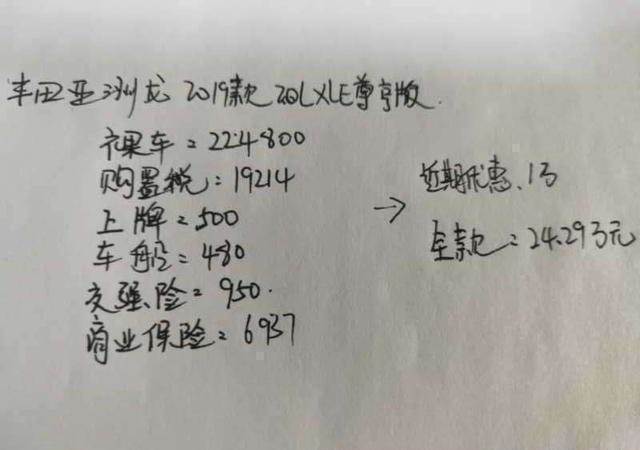 丰田亚洲龙 2019款 2.0L XLE尊享版
裸车:224800
购置税:19214
上牌:500
车船:480
交强险:950.
商业保险:6937
→
近期优惠、1万
全款:24.29万元